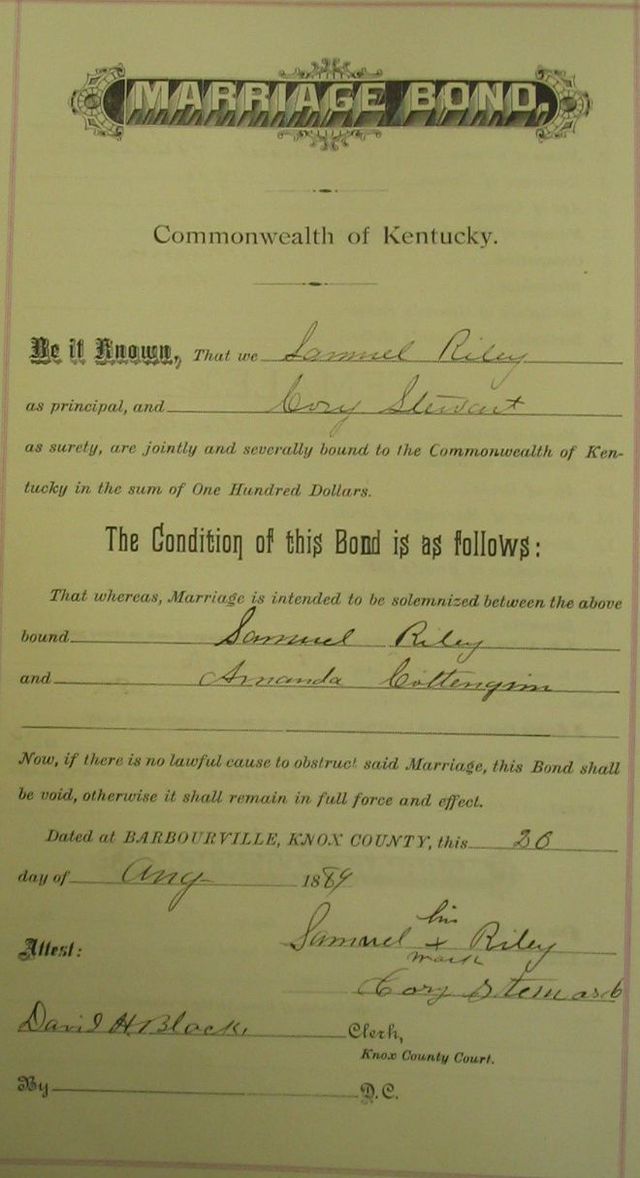 MARRIAGE BOND.
Commonwealth of Kentucky.
Be it Known, That we Samuel Riley
as principal, and Cory Stewart
as surety, are jointly and severally bound to the Commonwealth of Ken-
tucky in the sum of One Hundred Dollars.
The Condition of this Bond is as follows:
That whereas, Marriage is intended to be solemnized between the above
bound Samuel Riley
and Amanda Cottengim
Now, if there is no lawful cause to obstruct said Marriage, this Bond shall
be void, otherwise it shall remain in full force and effect.
Dated at BARBOURVILLE, KNOX COUNTY, this 20
day of Aug 1889
his
Attest: Samuel + Riley
mark
Cory Stewart
David H Black, Clerk,
Knox County Court.
By D.C.